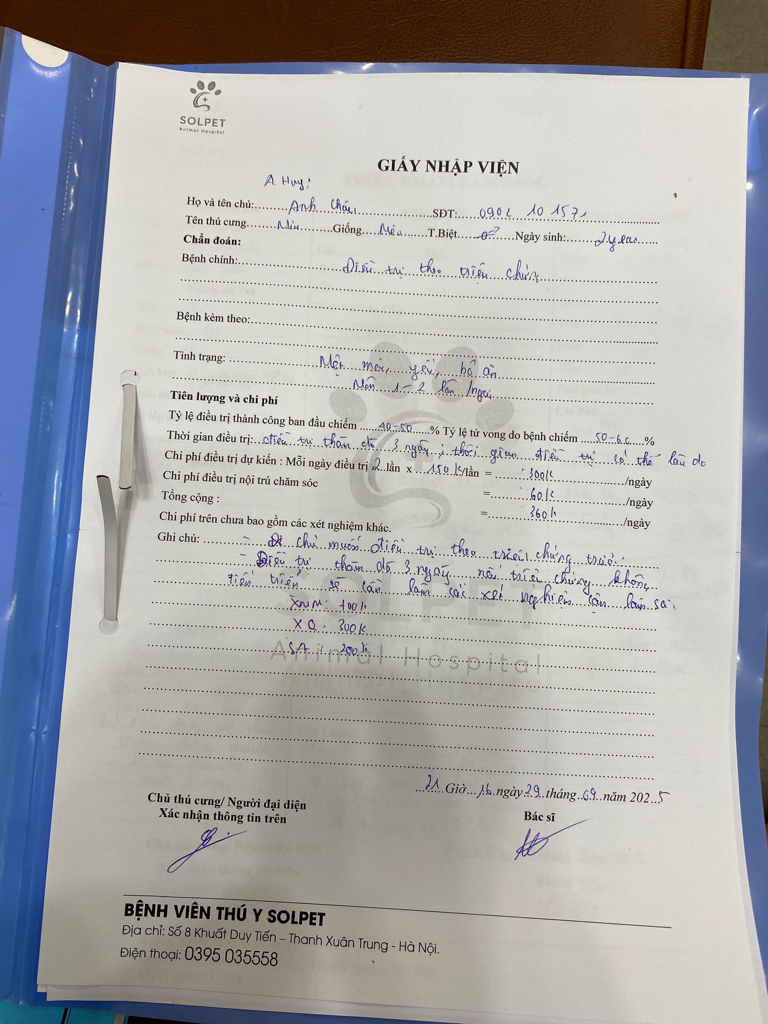 SOLPET
Animal Hospital
GIẤY NHẬP VIỆN
A. Huy;
Họ và tên chủ:.......Anh Châu...................SĐT:.....0902 10 157
Tên thú cưng........Miu.........Giống....Mèo.....T.Biệt.........Ngày sinh:........2 years......
Chẩn đoán:
Bệnh chính:.................Điều trị theo triệu chứng
Bệnh kèm theo:
Tình trạng: Mệt mỏi, yếu, bỏ ăn
Nôn 1-2 lần/ngày
Tiên lượng và chi phí
Tỷ lệ điều trị thành công ban đầu chiếm ...40-50.....% Tỷ lệ tử vong do bệnh chiếm ....50-60....%
Thời gian điều trị:..điều trị thăm dò 3 ngày; thời gian điều trị có thể lâu do
Chi phí điều trị dự kiến : Mỗi ngày điều trị 2 lần x ..150k/lần = .........300k................/ngày
Chi phí điều trị nội trú chăm sóc =..........60k................/ngày
Tổng cộng : =..........360k................/ngày
Chi phí trên chưa bao gồm các xét nghiệm khác.
Ghi chú: - chủ muốn điều trị theo triệu chứng trước.
- Điều trị thăm dò 3 ngày nếu triệu chứng không
tiến triển sẽ cần làm các xét nghiệm cận lâm sàng
XNM: 700k
XQ: 300k
SA: 200k
SOLPET
Animal Hospital
21 Giờ 16 ngày 29 tháng 09 năm 2025
Chủ thú cưng/ Người đại diện
Xác nhận thông tin trên
Bác sĩ
BỆNH VIỆN THÚ Y SOLPET
Địa chỉ: Số 8 Khuất Duy Tiến – Thanh Xuân Trung - Hà Nội.
Điện thoại: 0395 035558